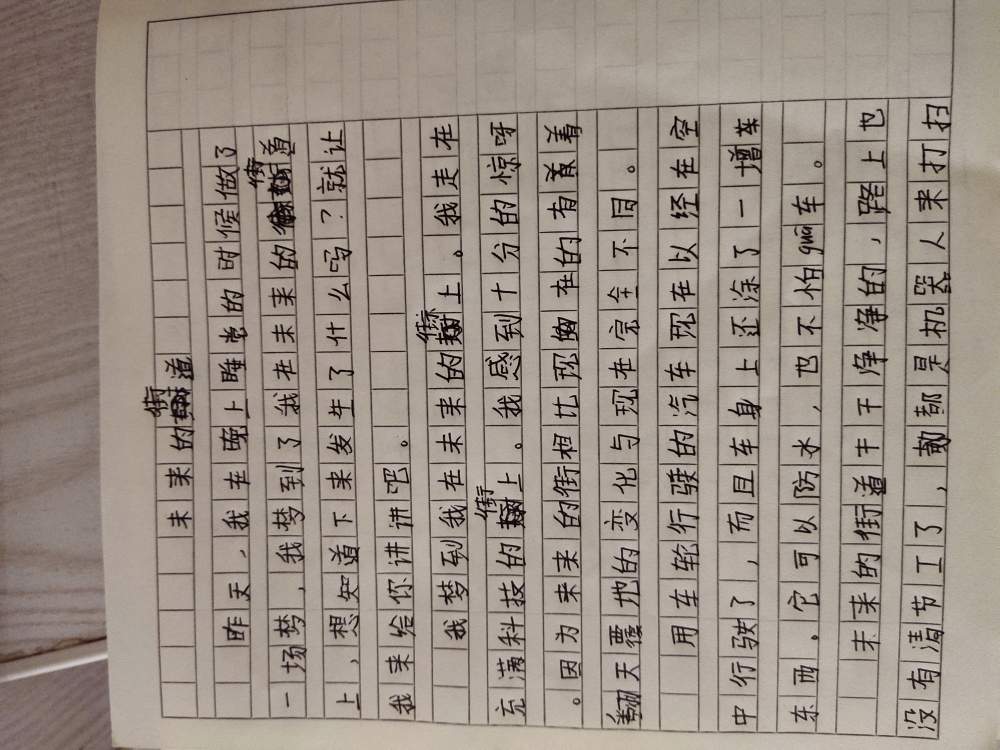 未来的街道
昨天，我在晚上睡着的时候做了
一场梦，我梦到了我在未来的街道
上，想知道下来发生了什么吗？就让
我来给你讲讲吧。
我梦到我在未来的街上。我走在
充满科技的街上。我感到十分的惊呀
。因为未来的街相比现在的有着
翻天覆地的变化与现在完全不同。
用车轮行驶的汽车现在以经在空
中行驶了，而且车身上还涂了一增车
东西。它可以防水，也不怕guā车。
未来的街道干干净净的，路上也
没有清节工了，都是机器人来打扫